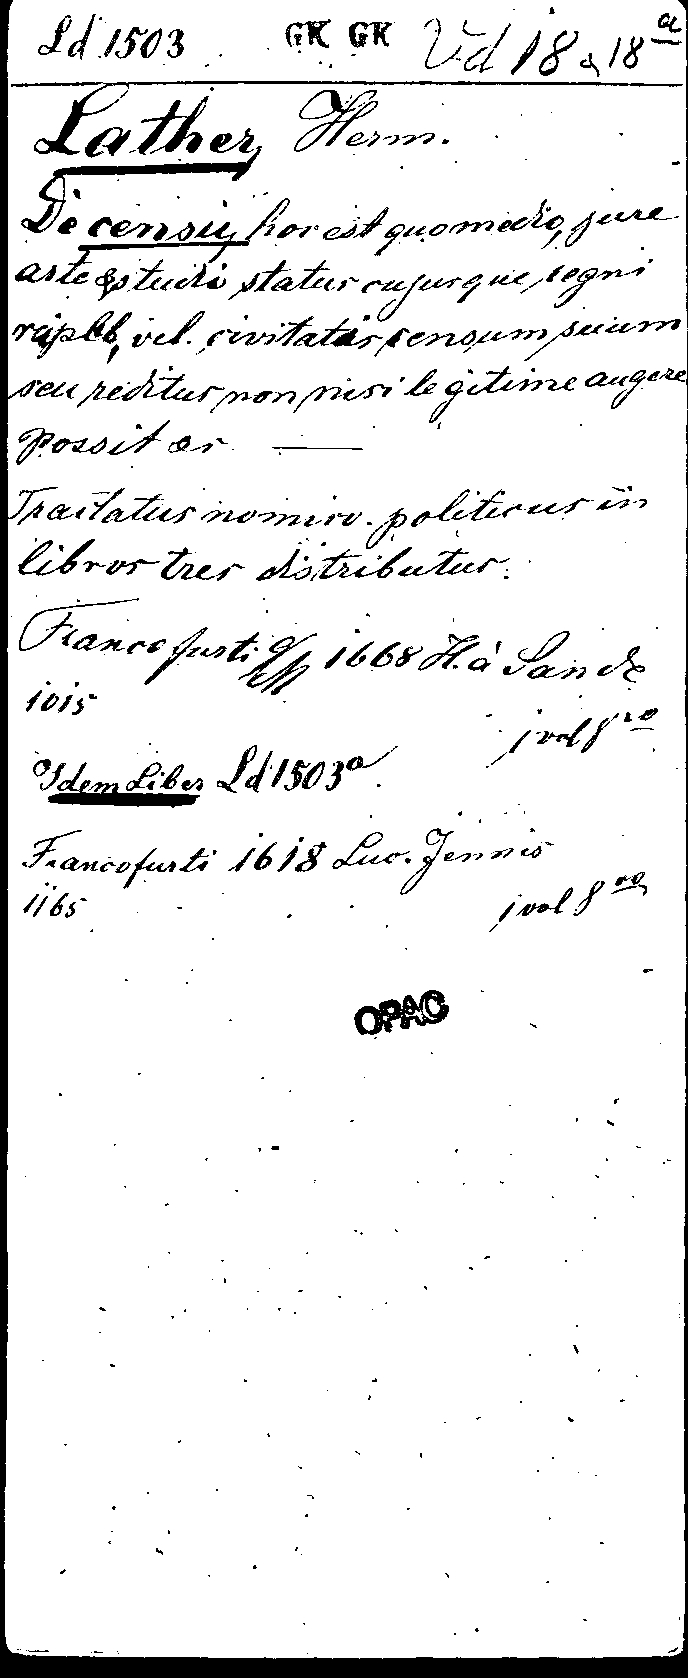 Ld 1503 GK GK Vd 18 & 18a
Lather, Herm.
De censu, hoc est quo medio, jure
arte & studii status cujusque regni
reipbl, vel. civitatis censum suum
seu reditus non nisi legitime augere
possit ac —
Tractatus nomico. politicus in
libros tres distributus.
Francofurti 1668 H. à Sande
1015
1 vol 8vo
Idem Liber Ld 1503a
Francofurti 1618 Luc. Jennis
1165
1 vol 8vo
OPAC